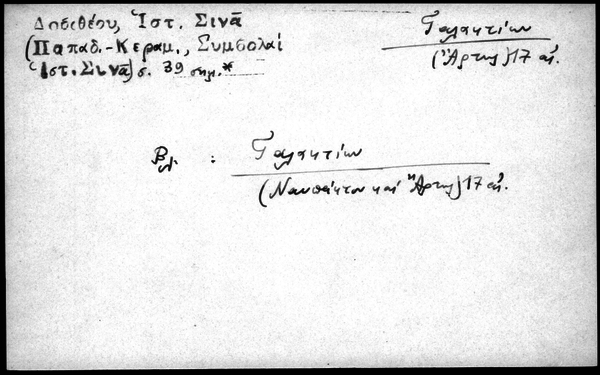 Δοσιθέου, Ἱστ. Σινᾶ
(Παπαδ.-Κεραμ., Συμβολαί
Ἱστ. Σινᾶ) σ. 39 σημ.*
Γαλακτίων
(Ἄρτης) 17 αἰ.
Βλ. : Γαλακτίων
(Ναυπάκτου καί Ἄρτης) 17 αἰ.